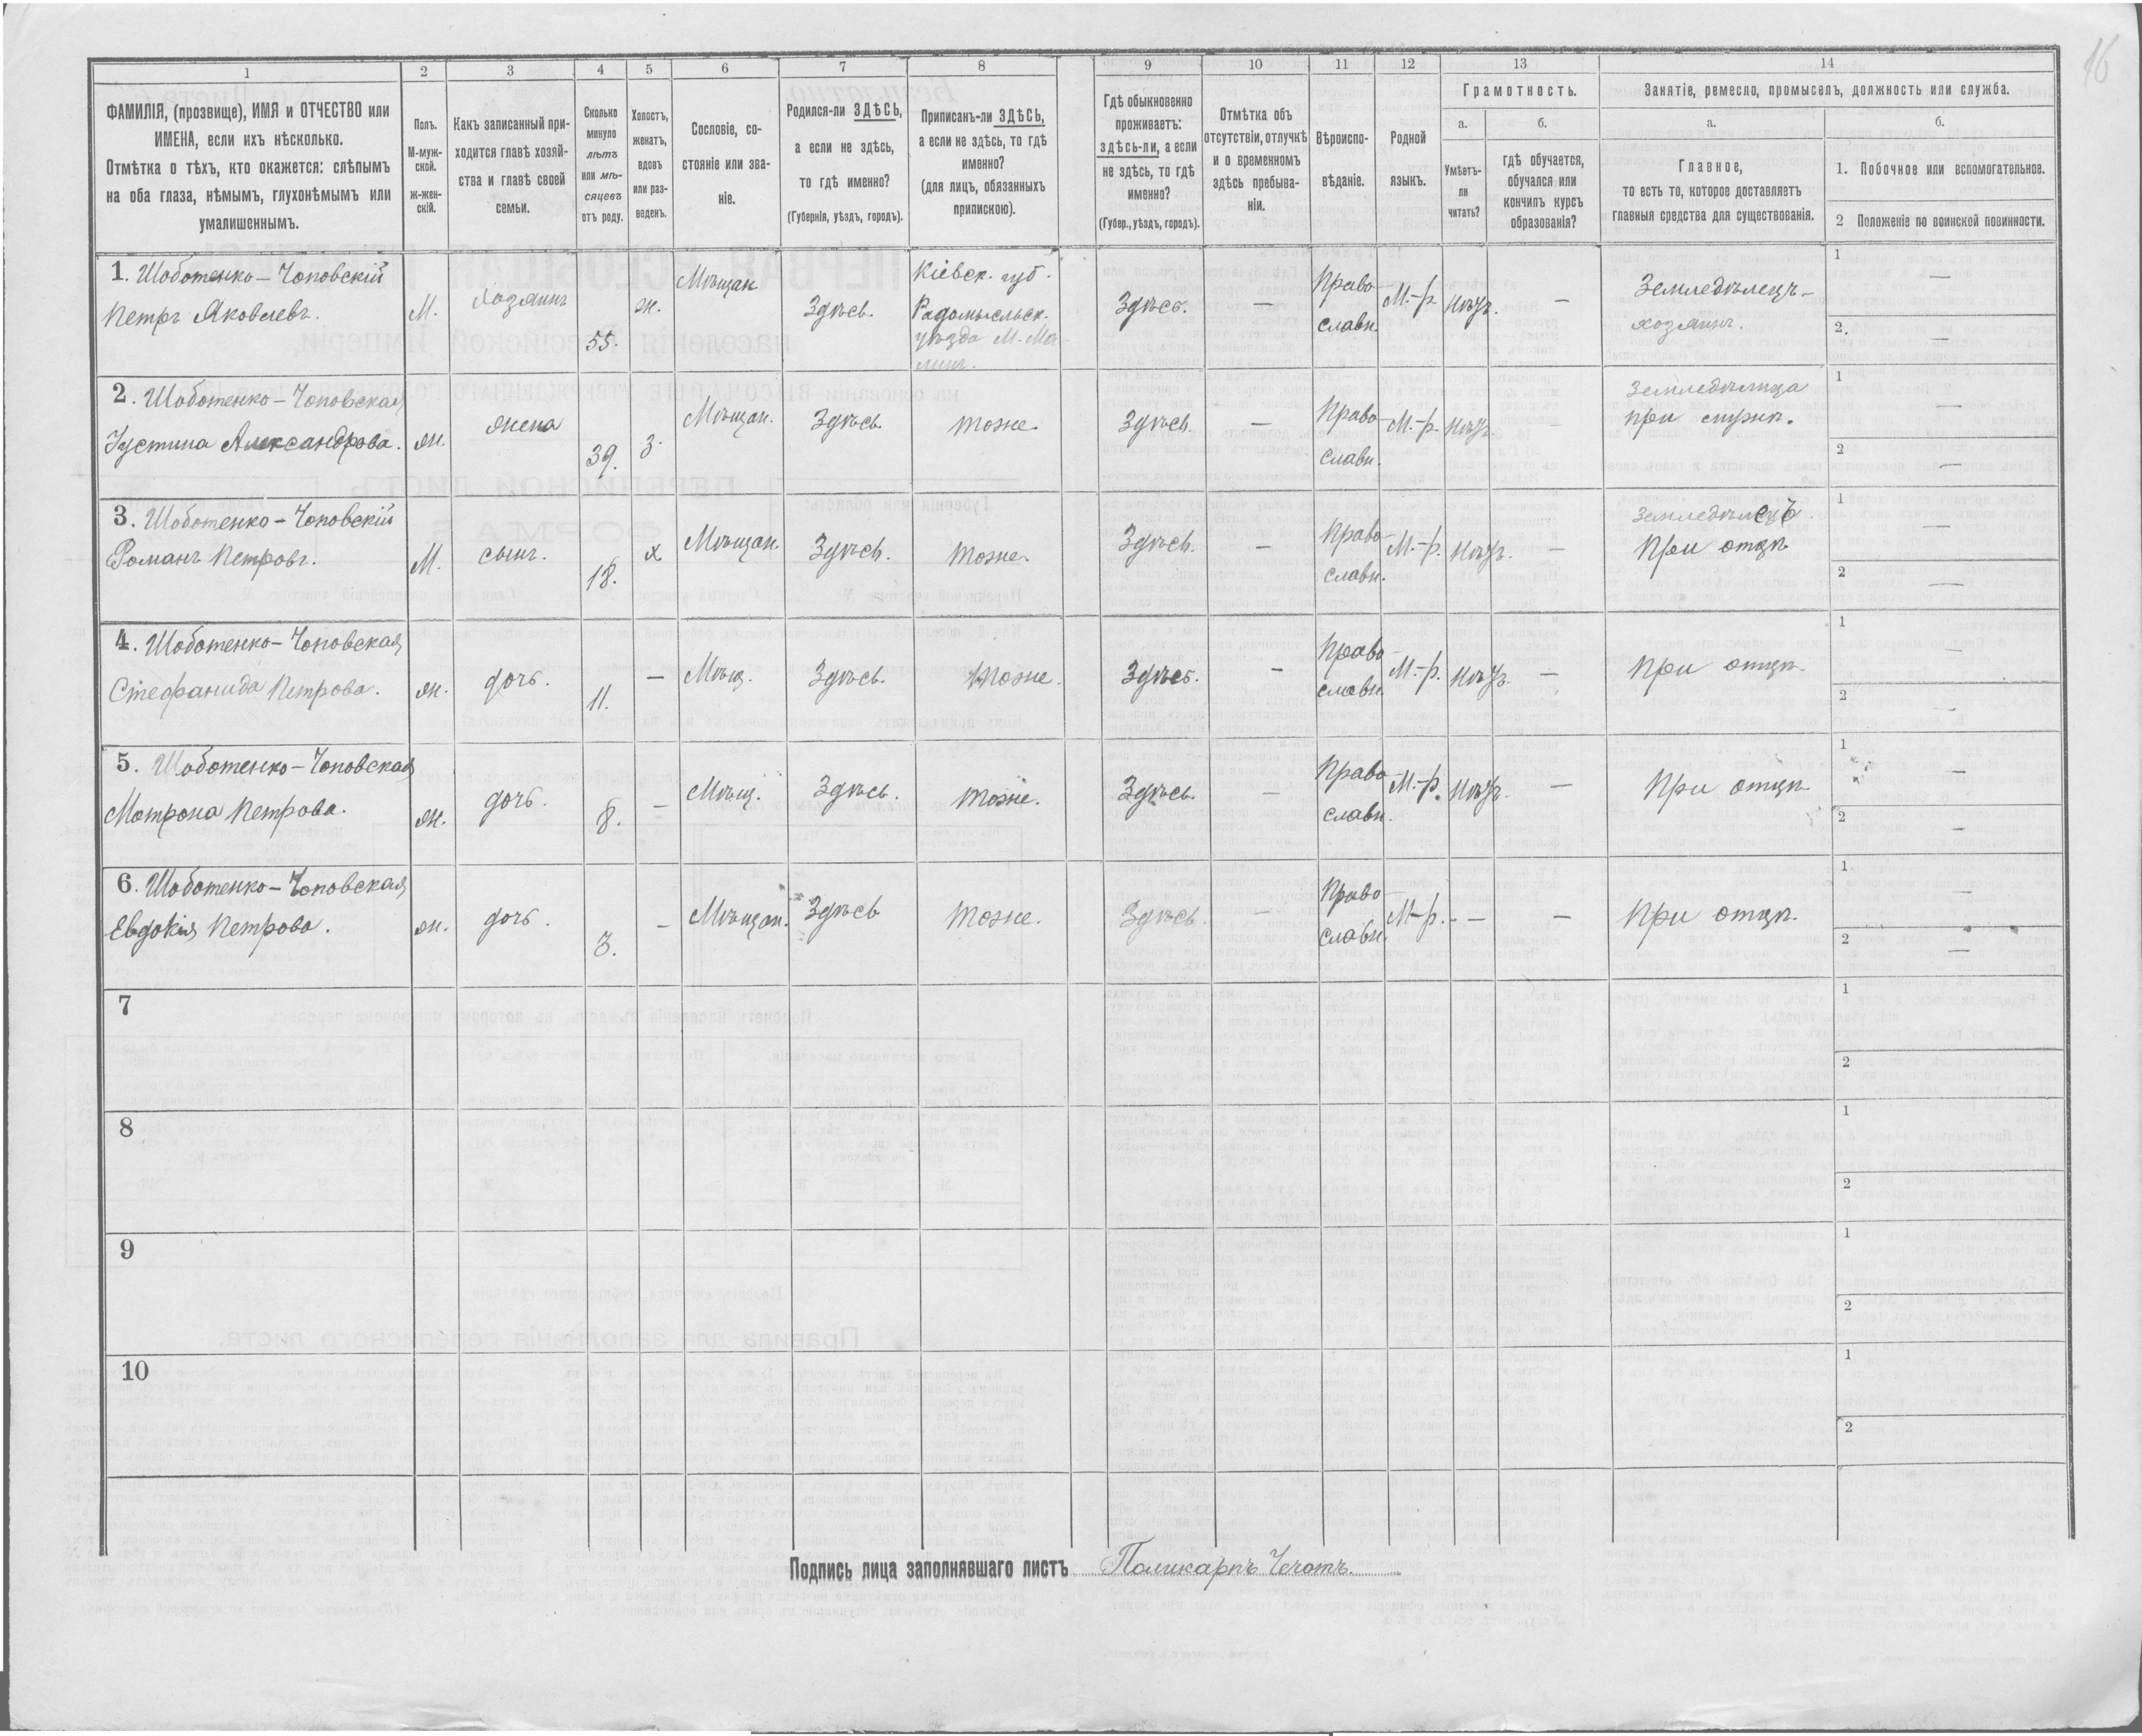 16
1
2
3
4
5
6
7
8
9
10
11
12
13
14
ФАМИЛІЯ, (прозвище), ИМЯ и ОТЧЕСТВО или
ИМЕНА, если ихъ нѣсколько.
Отмѣтка о тѣхъ, кто окажется: слѣпымъ
на оба глаза, нѣмымъ, глухонѣмымъ или
умалишеннымъ.
Полъ.
М-муж-
ской.
ж-жен-
скій.
Какъ записанный при-
ходится главѣ хозяй-
ства и главѣ своей
семьи.
Сколько
минуло
лѣтъ
или мѣ-
сяцевъ
отъ роду.
Холостъ,
женатъ,
вдовъ
или раз-
веденъ.
Сословіе, со-
стояніе или зва-
ніе.
Родился-ли ЗДѢСЬ,
а если не здѣсь,
то гдѣ именно?
(Губернія, уѣздъ, городъ).
Приписанъ-ли ЗДѢСЬ,
а если не здѣсь, то гдѣ
именно?
(для лицъ, обязанныхъ
припискою).
Гдѣ обыкновенно
проживаетъ:
здѣсь-ли, а если
не здѣсь, то гдѣ
именно?
(Губер., уѣздъ, городъ).
Отмѣтка объ
отсутствіи, отлучкѣ
и о временномъ
здѣсь пребыва-
ніи.
Вѣроиспо-
вѣданіе.
Родной
языкъ.
Грамотность.
а.
Умѣетъ-
ли
читать?
б.
гдѣ обучается,
обучался или
кончилъ курсъ
образованія?
Занятіе, ремесло, промыселъ, должность или служба.
а.
Главное,
то есть то, которое доставляетъ
главныя средства для существованія.
б.
1. Побочное или вспомогательное.
2 Положеніе по воинской повинности.
1. Шоботенко-Чоповскій
Петръ Яковлевъ.
М.
Хозяинъ
55.
ж.
Мѣщан
Здѣсь.
Кіевск. губ.
Радомысльск.
уѣзда М. Ма-
линъ.
Здѣсь.
—
Право-
славн.
М.-р.
нѣтъ.
—
Земледѣлецъ-
хозяинъ.
1
—
2.
—
2. Шоботенко-Чоповская
Устина Александрова.
ж.
жена
39.
з.
Мѣщан.
Здѣсь.
тоже.
Здѣсь.
—
Право-
славн.
М.-р.
нѣтъ.
—
Земледѣлица
при мужѣ.
1
—
2
—
3. Шоботенко-Чоповскій
Романъ Петровъ.
М.
сынъ.
18.
х
Мѣщан.
Здѣсь.
тоже.
Здѣсь.
—
Право-
славн.
М.-р.
нѣтъ.
—
Земледѣлецъ
При отцѣ
1
—
2
—
4. Шоботенко-Чоповская
Стефанида Петрова.
ж.
дочь.
11.
—
Мѣщ.
Здѣсь.
тоже.
Здѣсь.
—
Право-
славн.
М.-р.
нѣтъ.
—
При отцѣ.
1
—
2
—
5. Шоботенко-Чоповская
Мотрона Петрова.
ж.
дочь.
8.
—
Мѣщ.
Здѣсь.
тоже.
Здѣсь.
—
Право-
славн.
М.-р.
нѣтъ.
—
При отцѣ
1
—
2
—
6. Шоботенко-Чоповская
Евдокія Петрова.
ж.
дочь.
3.
—
Мѣщан.
Здѣсь
тоже.
Здѣсь.
—
Право-
славн.
М-р.
—
—
При отцѣ.
1
—
2
—
7
1
2
8
1
2
9
1
2
10
1
2
Подпись лица заполнявшаго листъ Поликарпъ Чечотъ.